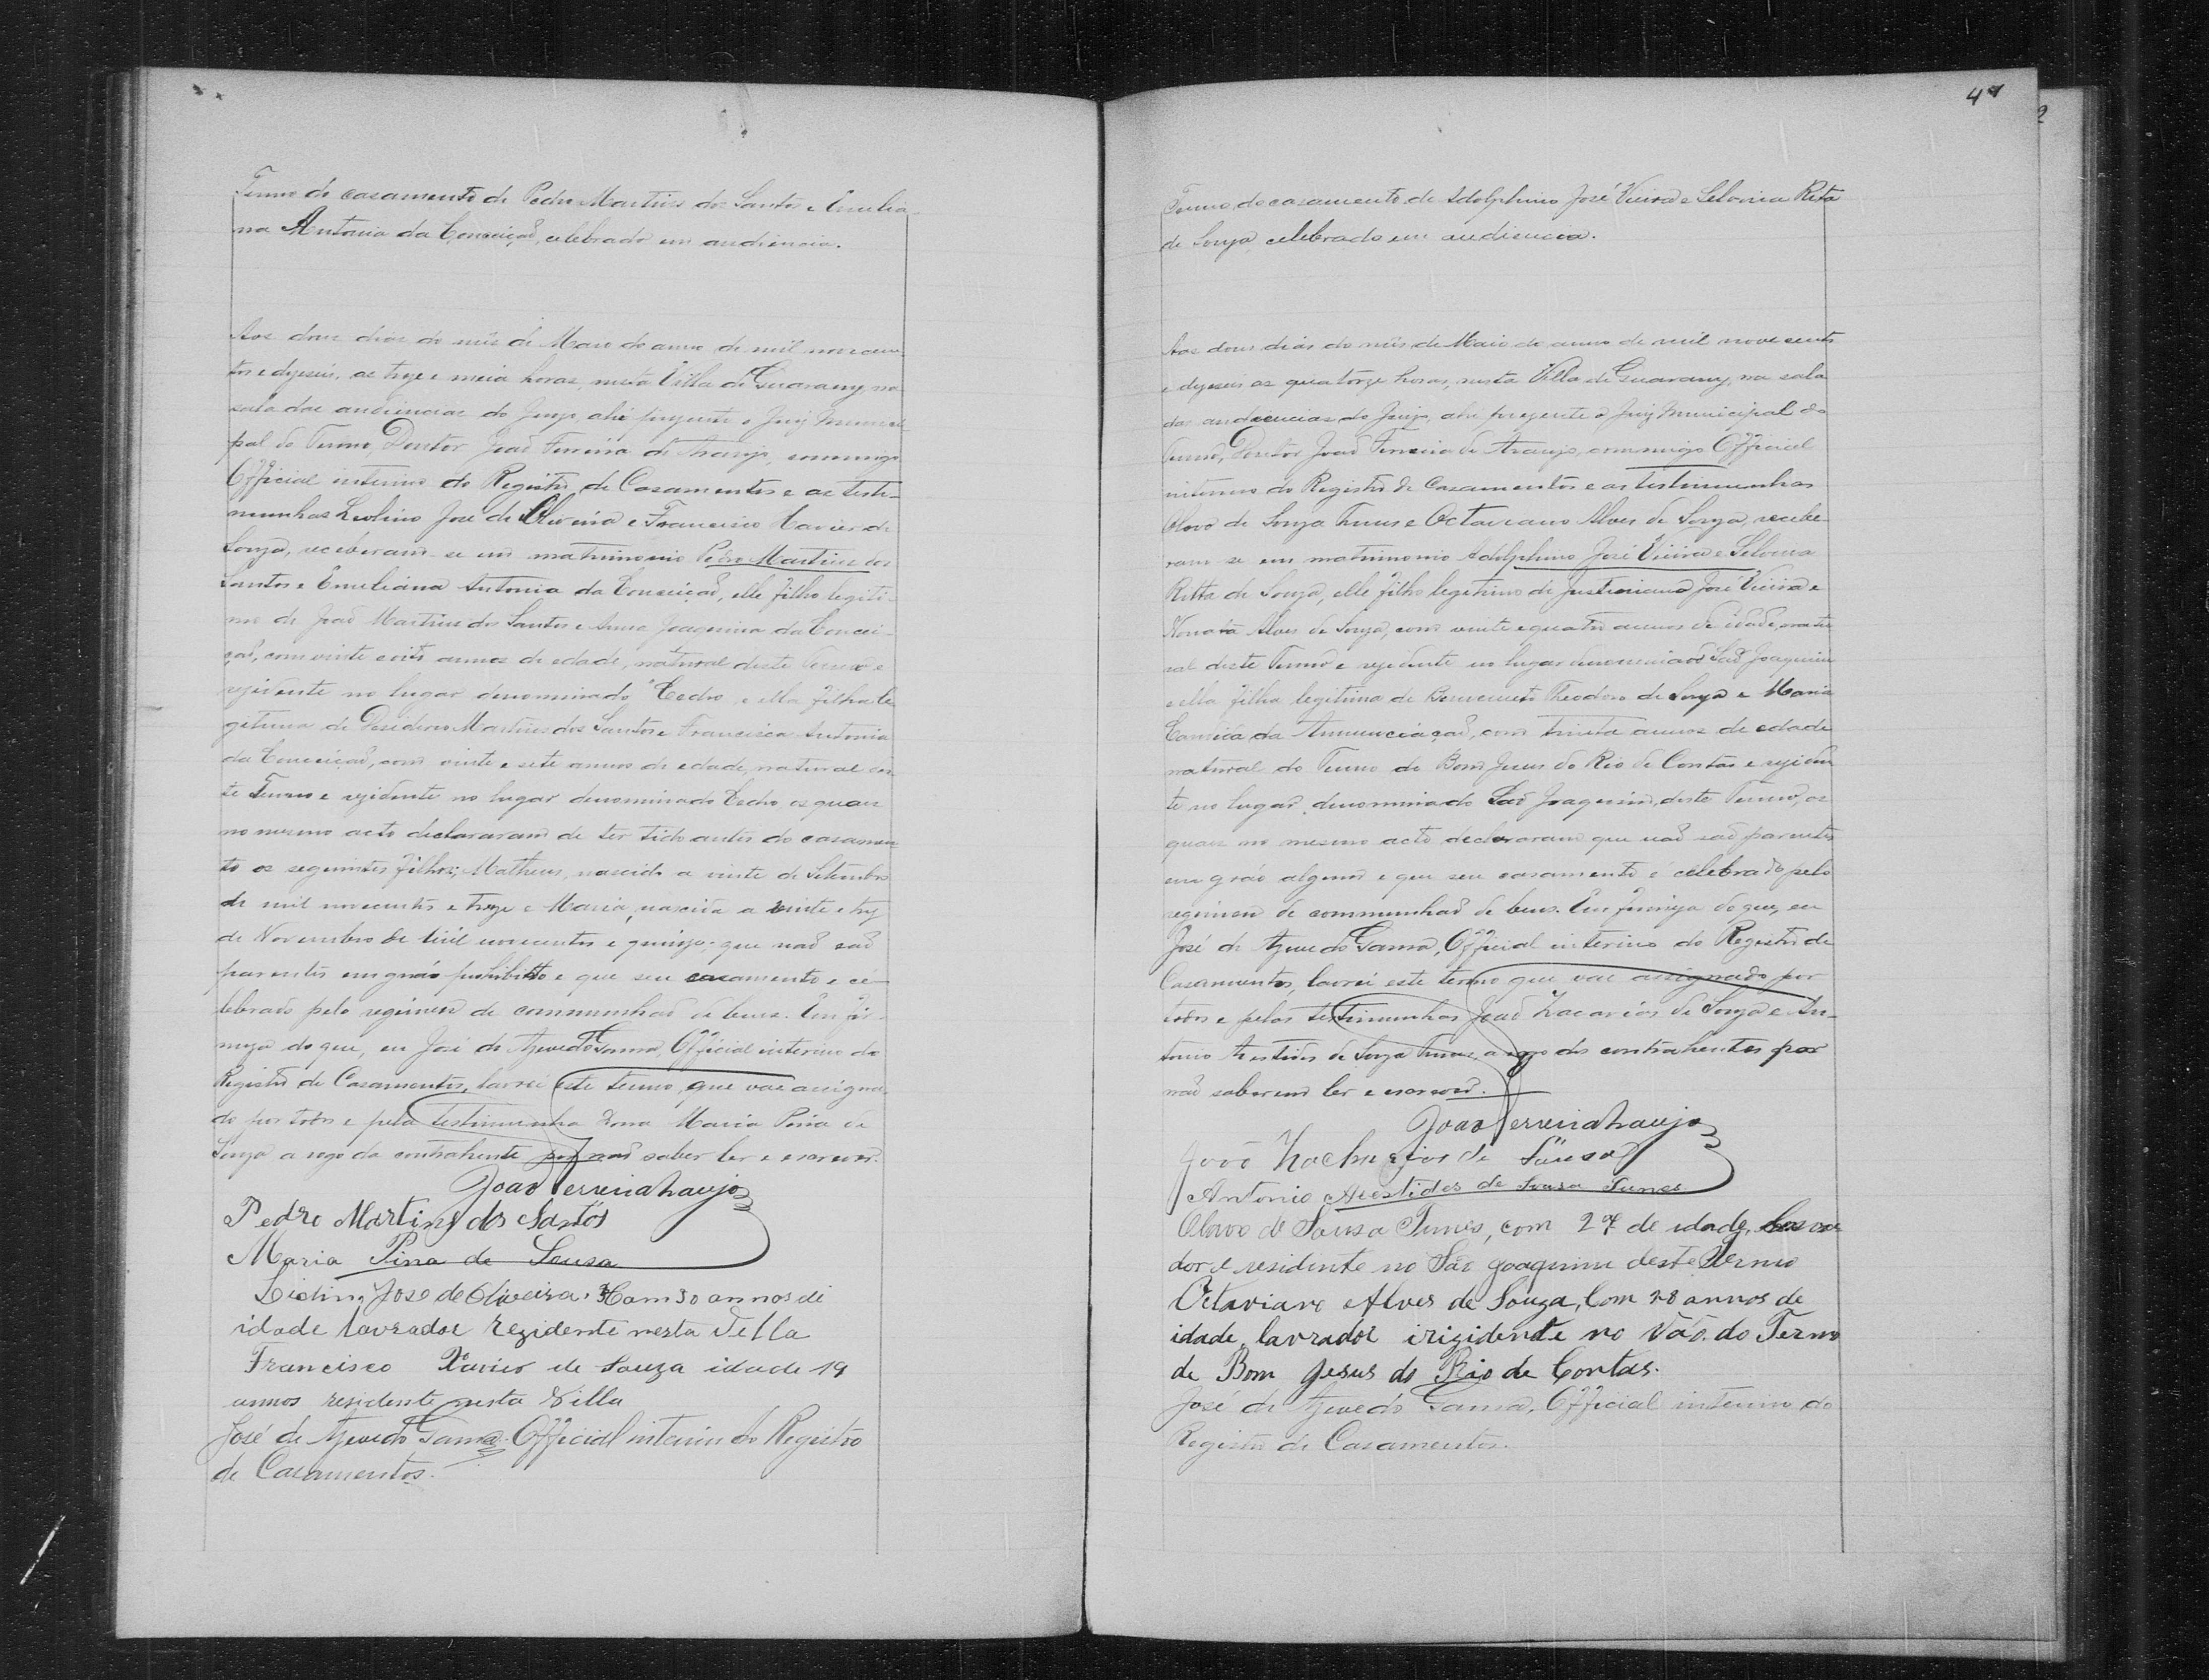 Termo de casamento de Pedro Martins dos Santos e Emilia-
na Antonia da Conceição, celebrado em audiencia.
Aos dous dias do mês de Maio do anno de mil novecen-
tos e dezeseis, as treze e meia horas, nesta Villa de Guarany, na
sala das audiencias do Juizo, ahi prezente o Juiz Munici-
pal do Termo, Doutor João Ferreira de Araujo, commigo
Official interino do Registro de Casamentos e as teste-
munhas Liolino José de Oliveira e Francisco Xavier de
Souza, receberam-se em matrimonio Pedro Martins dos
Santos e Emiliana Antonia da Conceição, elle filho legiti-
mo de João Martins dos Santos e Anna Joaquina da Concei-
ção, com vinte e oito annos de edade, natural deste Termo e
rezidente no lugar denominado Cedro, e ella filha le-
gitima de Desiderio Martins dos Santos e Francisca Antonia
da Conceição, com vinte e sete annos de edade, natural des-
te Termo e rezidente no lugar denominado Cedro, os quaes
no mesmo acto declararam de ter tido antes do casamen-
to os seguintes filhos; Matheus, nascido a vinte de Setembro
de mil novecentos e treze e Maria, nascida a vinte e trez
de Novembro de mil novecentos e quinze; que não são
parentes em gráo prohibitto e que seu casamento e ce-
lebrado pelo regimen de communhão de bens. Em fir-
meza do que, eu José de Azevedo Gama, Official interino do
Registro de Casamentos, lavrei este termo, que vae assigna-
do por todos e pela testimunha Dona Maria Pina de
Souza a rogo da contrahente por não saber ler e escrever.
João Ferreira Araujo
Pedro Martins dos Santos
Maria Pina de Sousa
Liolino José de Oliveira. Com 30 annos di
idade lavrador rezidente nesta Villa
Francisco Xavier de Souza idade 19
annos residente nesta Villa
José de Azevedo Gama. Official interino do Registro
de Casamentos.
Termo de casamento de Adolphino José Vieira e Selvina Rita
de Souza, celebrado em audiencia.
Aos dous dias do mês de Maio do anno de mil novecentos
e dezeseis as quatorze horas, nesta Villa de Guarany, na sala
das audiencias do Juizo, ahi prezente o Juiz Municipal do
Termo, Doutor João Ferreira de Araujo, commigo Official
interino do Registro de Casamentos e as testimunhas
Olavo de Souza Tunes e Octaviano Alves de Souza, recebe-
ram-se em matrimonio Adolphino José Vieira e Selvina
Ritta de Souza, elle filho legitimo de Justiniano José Vieira e
Alves de Souza, com vinte e quatro annos de idade, natu-
ral deste Termo e rezidente no lugar denominado São Joaquim
e ella filha legitima de Benvenuto Theodoro de Souza e Maria
da Annunciação, com trinta annos de edade
natural do Termo de Bom Jesus do Rio de Contas e reziden-
te no lugar denominado São Joaquim, deste Termo, os
quaes no mesmo acto declararam que não são parentes
em gráo algum e que seu casamento é celebrado pelo
regimen de communhão de bens. Em firmeza do que, eu
José de Azevedo Gama, Official interino do Registro de
Casamentos, lavrei este termo que vae assignado por
todos e pelas testimunhas João Zacarias de Souza e An-
tonio Arestides de Souza Tunes, a rogo dos contrahentes por
não saberem ler e escrever.
João Ferreira Araujo
João de Sousa
Antonio Arestides de Sousa Tunes
Olavo de Sousa Tunes, com 29 de idade, lavra-
dor e residente no São Joaquim deste Termo
Octaviano Alves de Souza, Com 28 annos de
idade, lavrador irizidente no Vão. do Termo
de Bom Jesus do Rio de Contas.
José de Azevedo Gama, Official interino do
Registro de Casamentos.